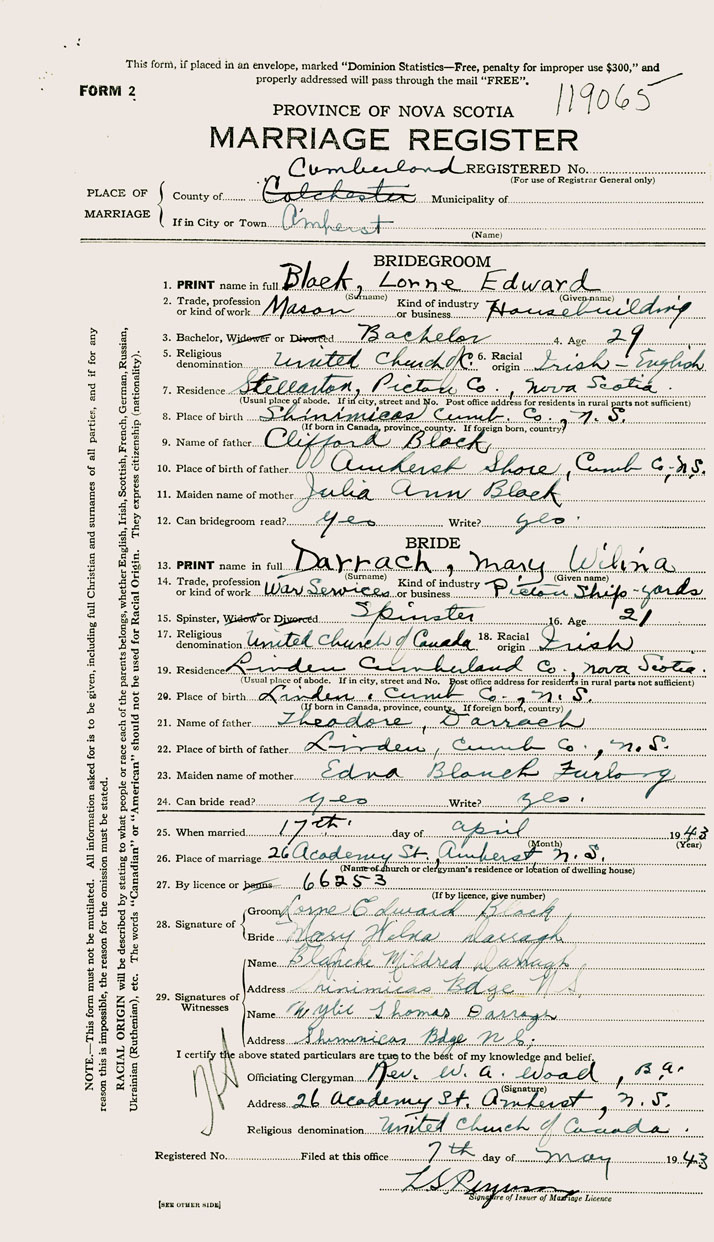 This form, if placed in an envelope, marked "Dominion Statistics—Free, penalty for improper use $300," and
properly addressed will pass through the mail "FREE".
FORM 2
119065
PROVINCE OF NOVA SCOTIA
MARRIAGE REGISTER
Cumberland REGISTERED No.
(For use of Registrar General only)
PLACE OF MARRIAGE
County of Colchester Municipality of
If in City or Town Amherst
(Name)
BRIDEGROOM
1. PRINT name in full Black, Lorne Edward
(Surname) (Given name)
2. Trade, profession or kind of work Mason Kind of industry or business Housebuilding
3. Bachelor, Widower or Divorced Bachelor 4. Age 29
5. Religious denomination United Church of C. 6. Racial origin Irish - English
7. Residence Stellarton, Pictou Co., Nova Scotia.
(Usual place of abode. If in city, street and No. Post office address for residents in rural parts not sufficient)
8. Place of birth Shinimicas Cumb. Co., N.S.
(If born in Canada, province, county. If foreign born, country)
9. Name of father Clifford Black
10. Place of birth of father Amherst Shore, Cumb Co. N.S.
11. Maiden name of mother Julia Ann Black
12. Can bridegroom read? Yes Write? Yes.
BRIDE
13. PRINT name in full Darrach, Mary Wilna
(Surname) (Given name)
14. Trade, profession or kind of work War Services Kind of industry or business Pictou Ship-yards
15. Spinster, Widow or Divorced Spinster 16. Age 21
17. Religious denomination United Church of Canada 18. Racial origin Irish
19. Residence Linden Cumberland Co., Nova Scotia.
(Usual place of abode. If in city, street and No. Post office address for residents in rural parts not sufficient)
20. Place of birth Linden, Cumb Co., N.S.
(If born in Canada, province, county. If foreign born, country)
21. Name of father Theodore, Darrach
22. Place of birth of father Linden, Cumb Co., N.S.
23. Maiden name of mother Edna Blanch Furlong
24. Can bride read? Yes Write? Yes.
25. When married 17th. day of April 1943
(Month) (Year)
26. Place of marriage 26 Academy St., Amherst, N.S.
(Name of church or clergyman's residence or location of dwelling house)
27. By licence or banns 66253
(If by licence, give number)
28. Signature of
Groom Lorne Edward Black
Bride Mary Wilna Darragh
29. Signatures of Witnesses
Name Blanche Mildred Darragh
Address Shinimicas Bdge N S.
Name Wylie Thomas Darragh
Address Shinimicas Bdge N S.
I certify the above stated particulars are true to the best of my knowledge and belief.
Officiating Clergyman Rev. W. A. Wood, B.A.
(Signature)
Address 26 Academy St. Amherst, N.S.
Religious denomination United Church of Canada.
Registered No. Filed at this office 7th day of May 1943
Signature of Issuer of Marriage Licence
[SEE OTHER SIDE]
NOTE.—This form must not be mutilated. All information asked for is to be given, including full Christian and surnames of all parties, and if for any
reason this is impossible, the reason for the omission must be stated.
RACIAL ORIGIN will be described by stating to what people or race each of the parents belongs, whether English, Irish, Scottish, French, German, Russian,
Ukrainian (Ruthenian), etc. The words "Canadian" or "American" should not be used for Racial Origin. They express citizenship (nationality).